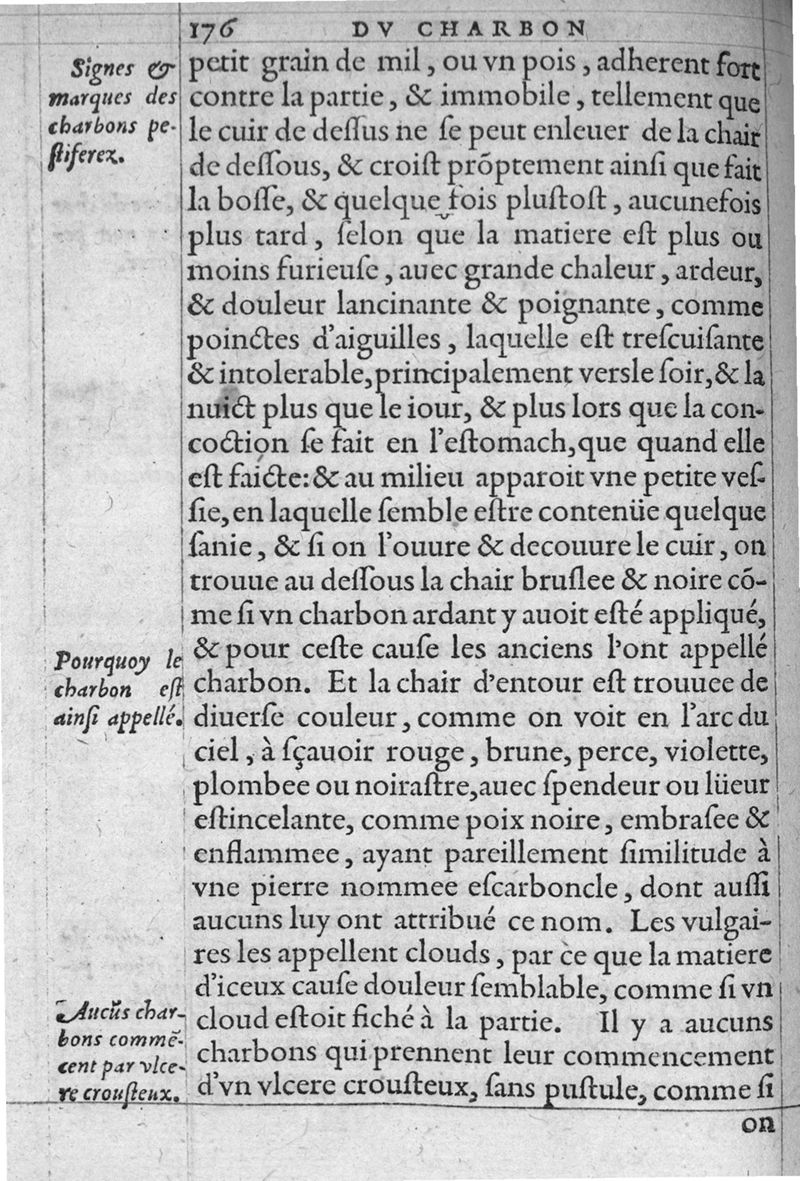 176 DV CHARBON
Signes &
marques des
charbons pe-
ſtiferez.
petit grain de mil, ou vn pois, adherent fort
contre la partie, & immobile, tellement que
le cuir de deſſus ne ſe peut enleuer de la chair
de deſſous, & croiſt prõptement ainſi que fait
la boſſe, & quelque fois pluſtoſt, aucunefois
plus tard, ſelon que la matiere eſt plus ou
moins furieuſe, auec grande chaleur, ardeur,
& douleur lancinante & poignante, comme
poinctes d'aiguilles, laquelle eſt treſcuiſante
& intolerable, principalement vers le ſoir, & la
nuict plus que le iour, & plus lors que la con-
coction ſe fait en l'eſtomach, que quand elle
eſt faicte: & au milieu apparoit vne petite veſ-
ſie, en laquelle ſemble eſtre contenüe quelque
ſanie, & ſi on l'ouure & decouure le cuir, on
trouue au deſſous la chair bruſlee & noire cõ-
me ſi vn charbon ardant y auoit eſté appliqué,
& pour ceſte cauſe les anciens l'ont appellé
Pourquoy le
charbon eſt
ainſi appellé.
charbon. Et la chair d'entour eſt trouuee de
diuerſe couleur, comme on voit en l'arc du
ciel, à ſçauoir rouge, brune, perce, violette,
plombee ou noiraſtre, auec ſpendeur ou lüeur
eſtincelante, comme poix noire, embraſee &
enflammee, ayant pareillement ſimilitude à
vne pierre nommee eſcarboncle, dont auſſi
aucuns luy ont attribué ce nom. Les vulgai-
res les appellent clouds, par ce que la matiere
d'iceux cauſe douleur ſemblable, comme ſi vn
Aucũs char-
bons commẽ-
cent par vlce-
re crouſteux.
cloud eſtoit fiché à la partie. Il y a aucuns
charbons qui prennent leur commencement
d'vn vlcere crouſteux, ſans puſtule, comme ſi
on